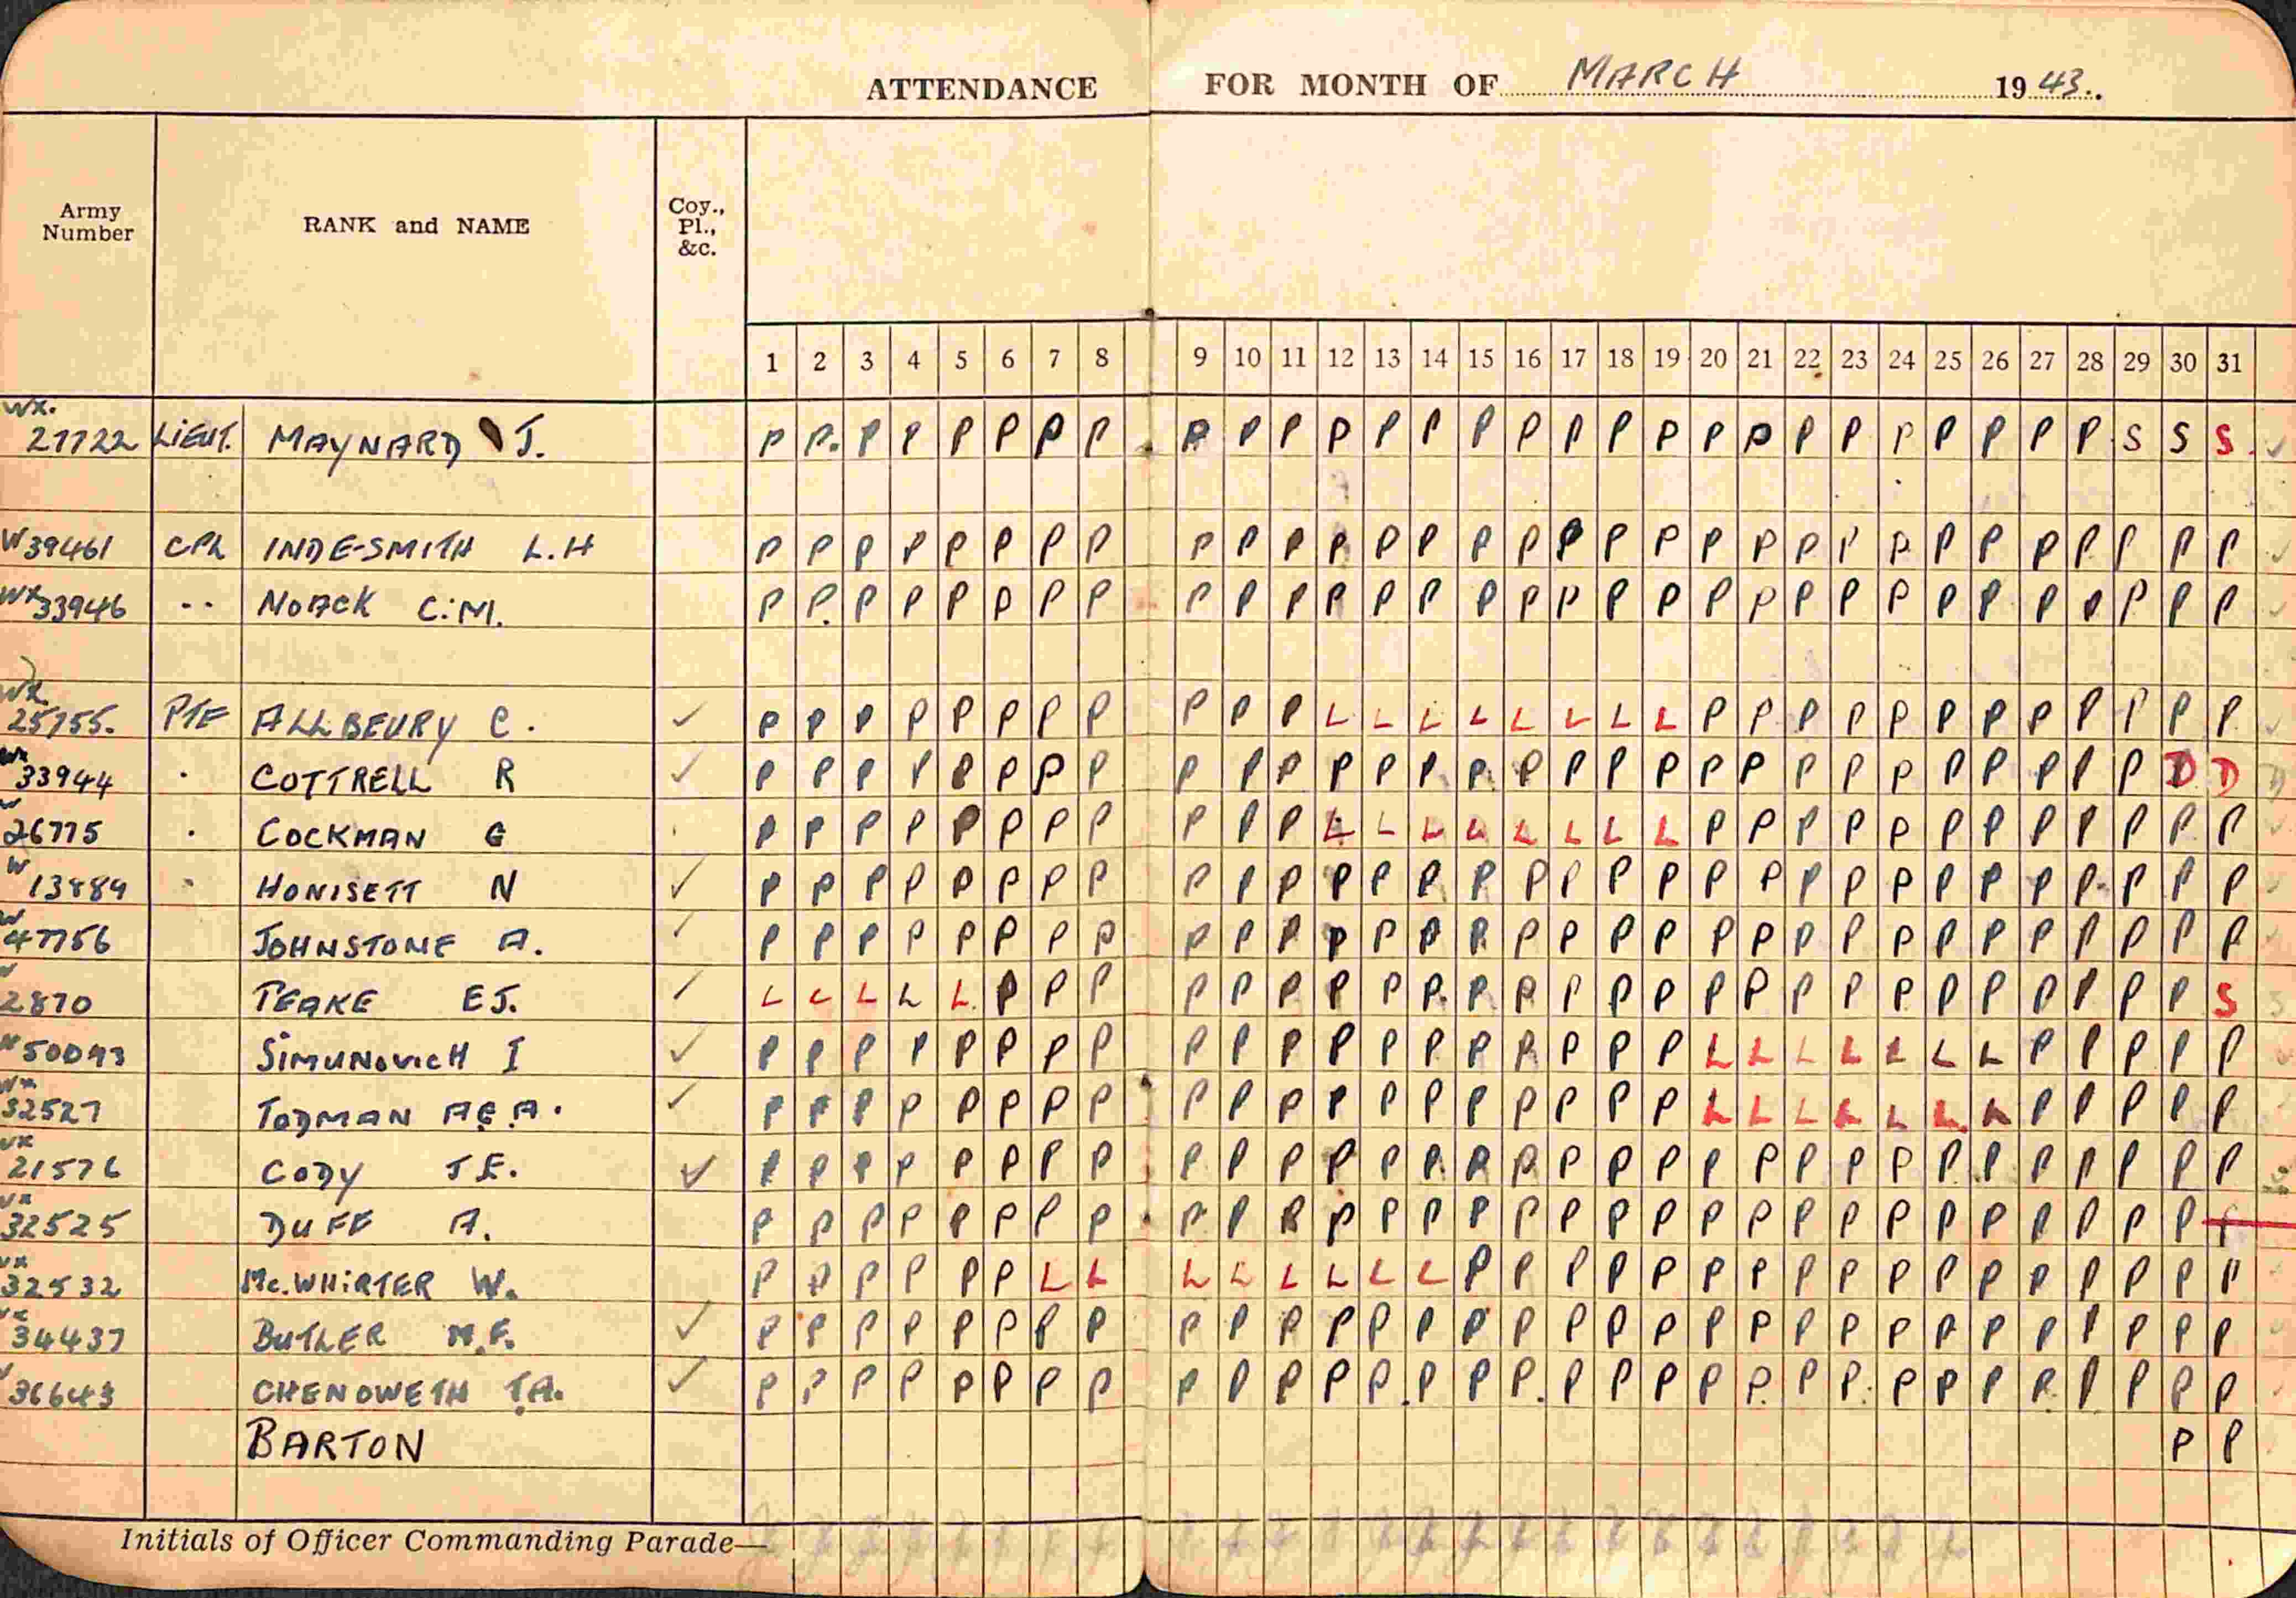 ATTENDANCE FOR MONTH OF MARCH 1943.
Army Number RANK and NAME Coy., Pl., &c.
1 2 3 4 5 6 7 8 9 10 11 12 13 14 15 16 17 18 19 20 21 22 23 24 25 26 27 28 29 30 31
WX. 27722 LIEUT. MAYNARD J. P P. P P P P P P P P P P P P P P P P P P P P P P P P P P S S S
W39461 CPL INDE-SMITH L.H P P P P P P P P P P P P P P P P P P P P P P P P P P P P P P P
WX33946 .. NOACK C.M. P P. P P P P P P P P P P P P P P P P P P P P P P P P P P P P P
WX 25755. PTE ALLBEURY C. ✓ P P P P P P P P P P P L L L L L L L L P P P P P P P P P P P P
WX 33944 . COTTRELL R ✓ P P P P P P P P P P P P P P P P P P P P P P P P P P P P P D D
W 26775 . COCKMAN G P P P P P P P P P P P L L L L L L L L P P P P P P P P P P P P
W 13889 . HONISETT N ✓ P P P P P P P P P P P P P P P P P P P P P P P P P P P P P P P
W 47756 JOHNSTONE A. ✓ P P P P P P P P P P P P P P P P P P P P P P P P P P P P P P P
2870 PEAKE E J. ✓ L L L L L P P P P P P P P P P P P P P P P P P P P P P P P P S
SIMUNOVICH I ✓ P P P P P P P P P P P P P P P P P P P L L L L L L L P P P P P
WX 32527 TODMAN A.E.A. ✓ P P P P P P P P P P P P P P P P P P P L L L L L L L P P P P P
WX 21576 CODY J.E. ✓ P P P P P P P P P P P P P P P P P P P P P P P P P P P P P P P
WX 32525 DUFF A. P P P P P P P P P P P P P P P P P P P P P P P P P P P P P P P
WX 32532 Mc.WHIRTER W. P P P P P P L L L L L L L L P P P P P P P P P P P P P P P P P
34437 BUTLER M.F. ✓ P P P P P P P P P P P P P P P P P P P P P P P P P P P P P P P
36643 CHENOWETH T.A. ✓ P P P P P P P P P P P P P P P P P P P P P P P P P P P P P P P
BARTON P P
Initials of Officer Commanding Parade—